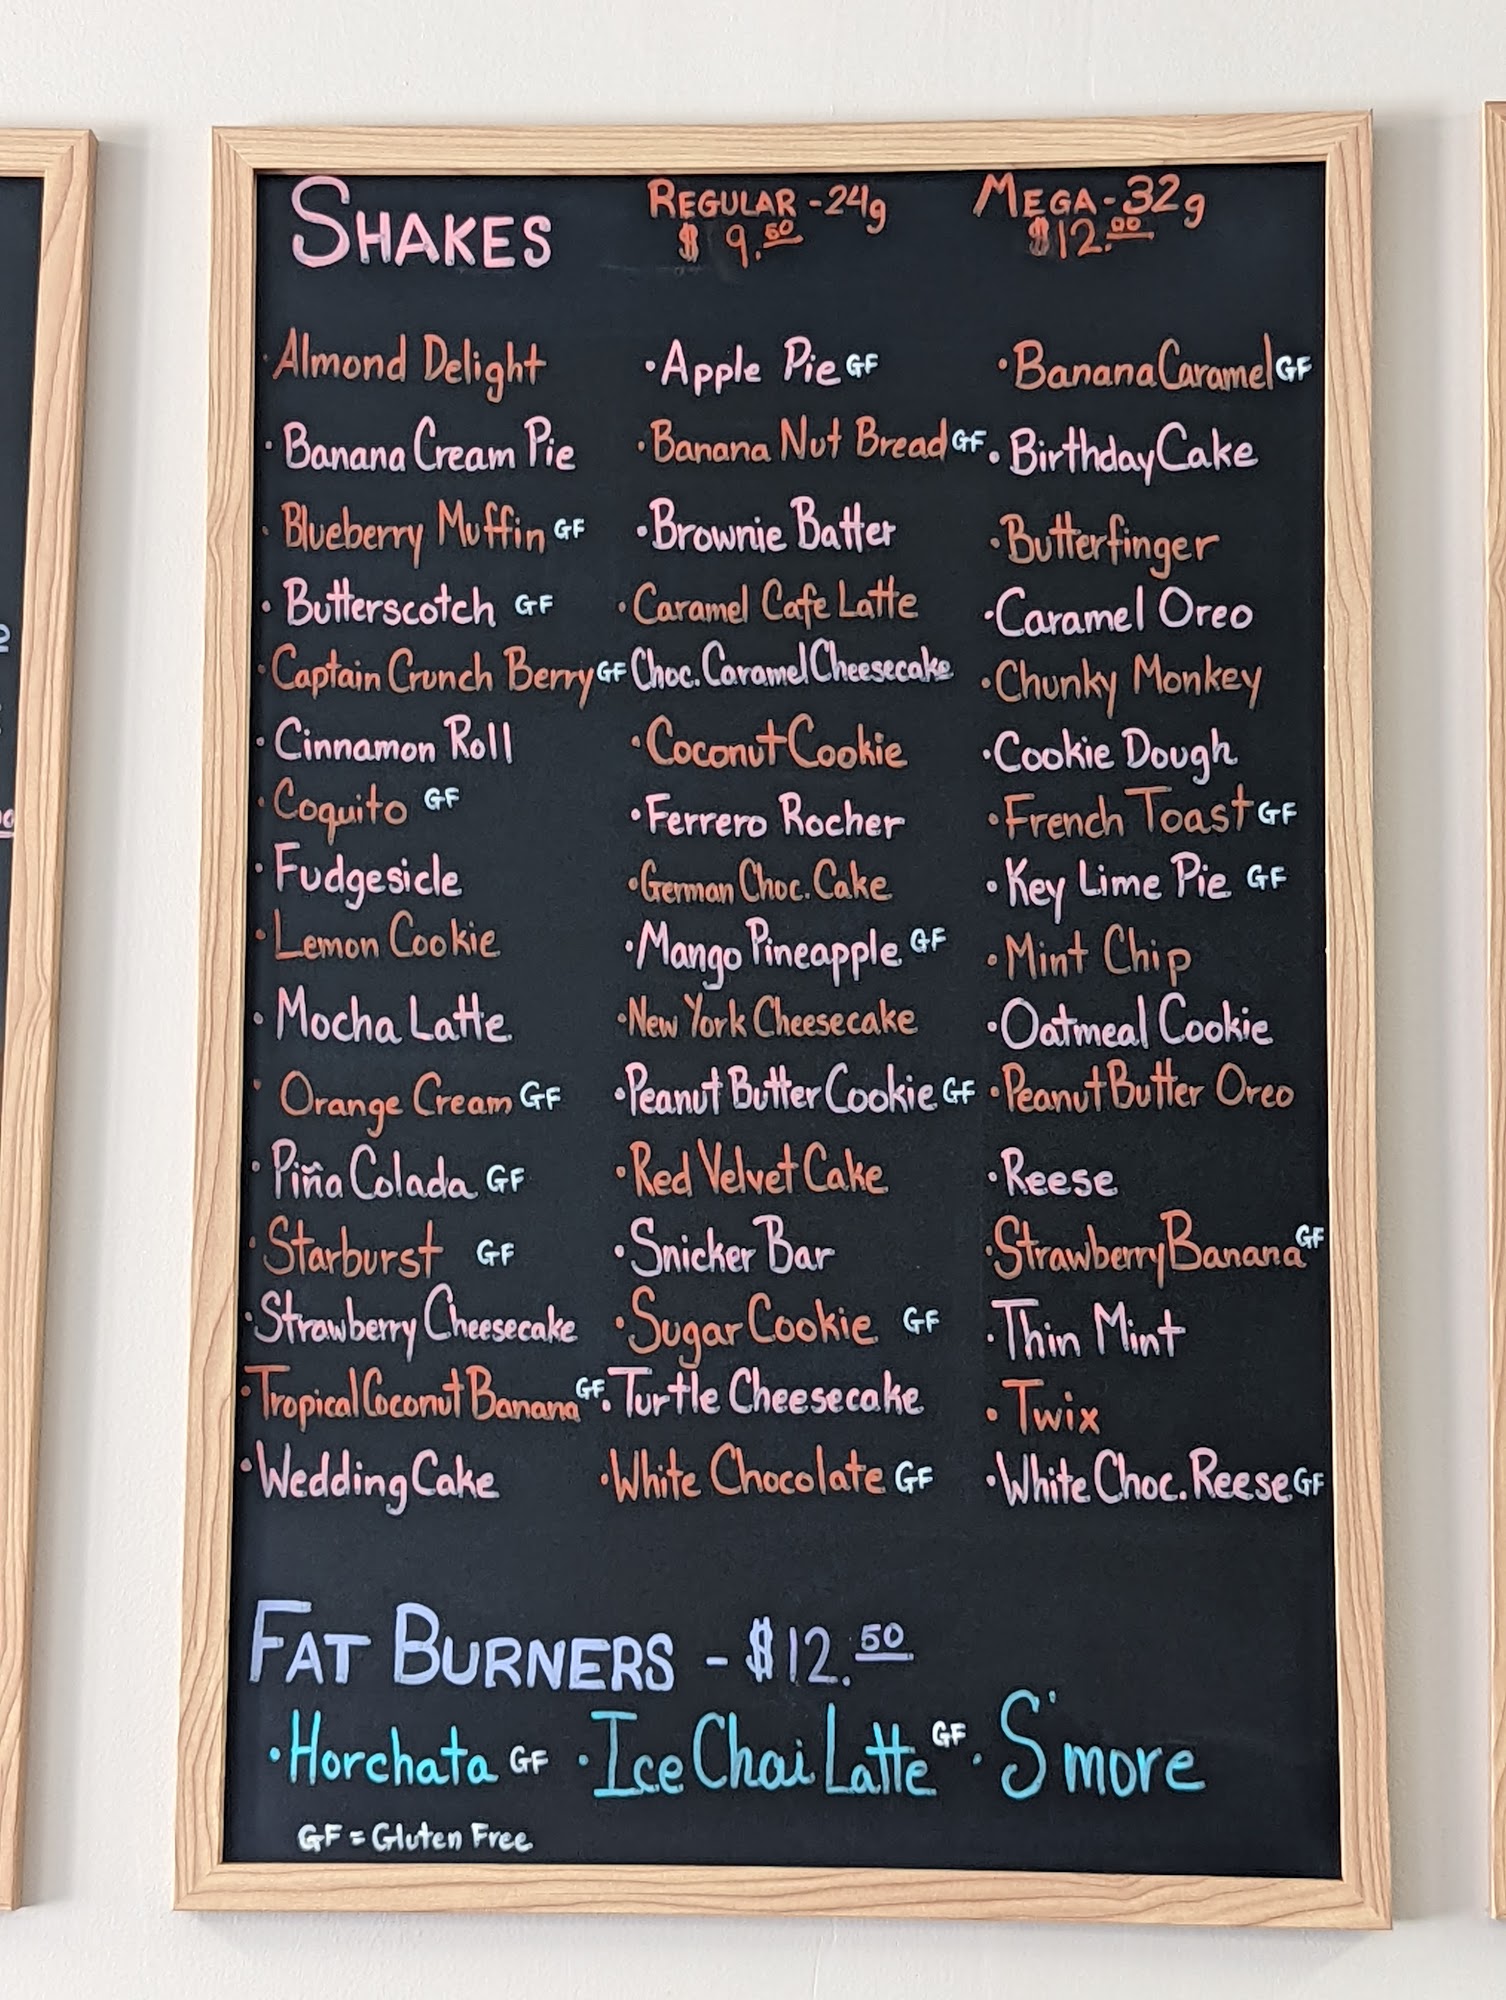 SHAKES REGULAR - 24g MEGA - 32g
$ 9.50 $12.00
· Almond Delight · Apple Pie GF · Banana Caramel GF
· Banana Cream Pie · Banana Nut Bread GF · Birthday Cake
· Blueberry Muffin GF · Brownie Batter · Butterfinger
· Butterscotch GF · Caramel Cafe Latte · Caramel Oreo
· Captain Crunch Berry GF Choc. Caramel Cheesecake · Chunky Monkey
· Cinnamon Roll · Coconut Cookie · Cookie Dough
· Coquito GF · Ferrero Rocher · French Toast GF
· Fudgesicle · German Choc. Cake · Key Lime Pie GF
· Lemon Cookie · Mango Pineapple GF · Mint Chip
· Mocha Latte · New York Cheesecake · Oatmeal Cookie
· Orange Cream GF · Peanut Butter Cookie GF · Peanut Butter Oreo
· Piña Colada GF · Red Velvet Cake · Reese
· Starburst GF · Snicker Bar · Strawberry Banana GF
· Strawberry Cheesecake · Sugar Cookie GF · Thin Mint
· Tropical Coconut Banana GF · Turtle Cheesecake · Twix
· Wedding Cake · White Chocolate GF · White Choc. Reese GF
FAT BURNERS - $12.50
· Horchata GF · Ice Chai Latte GF · S'more
GF = Gluten Free